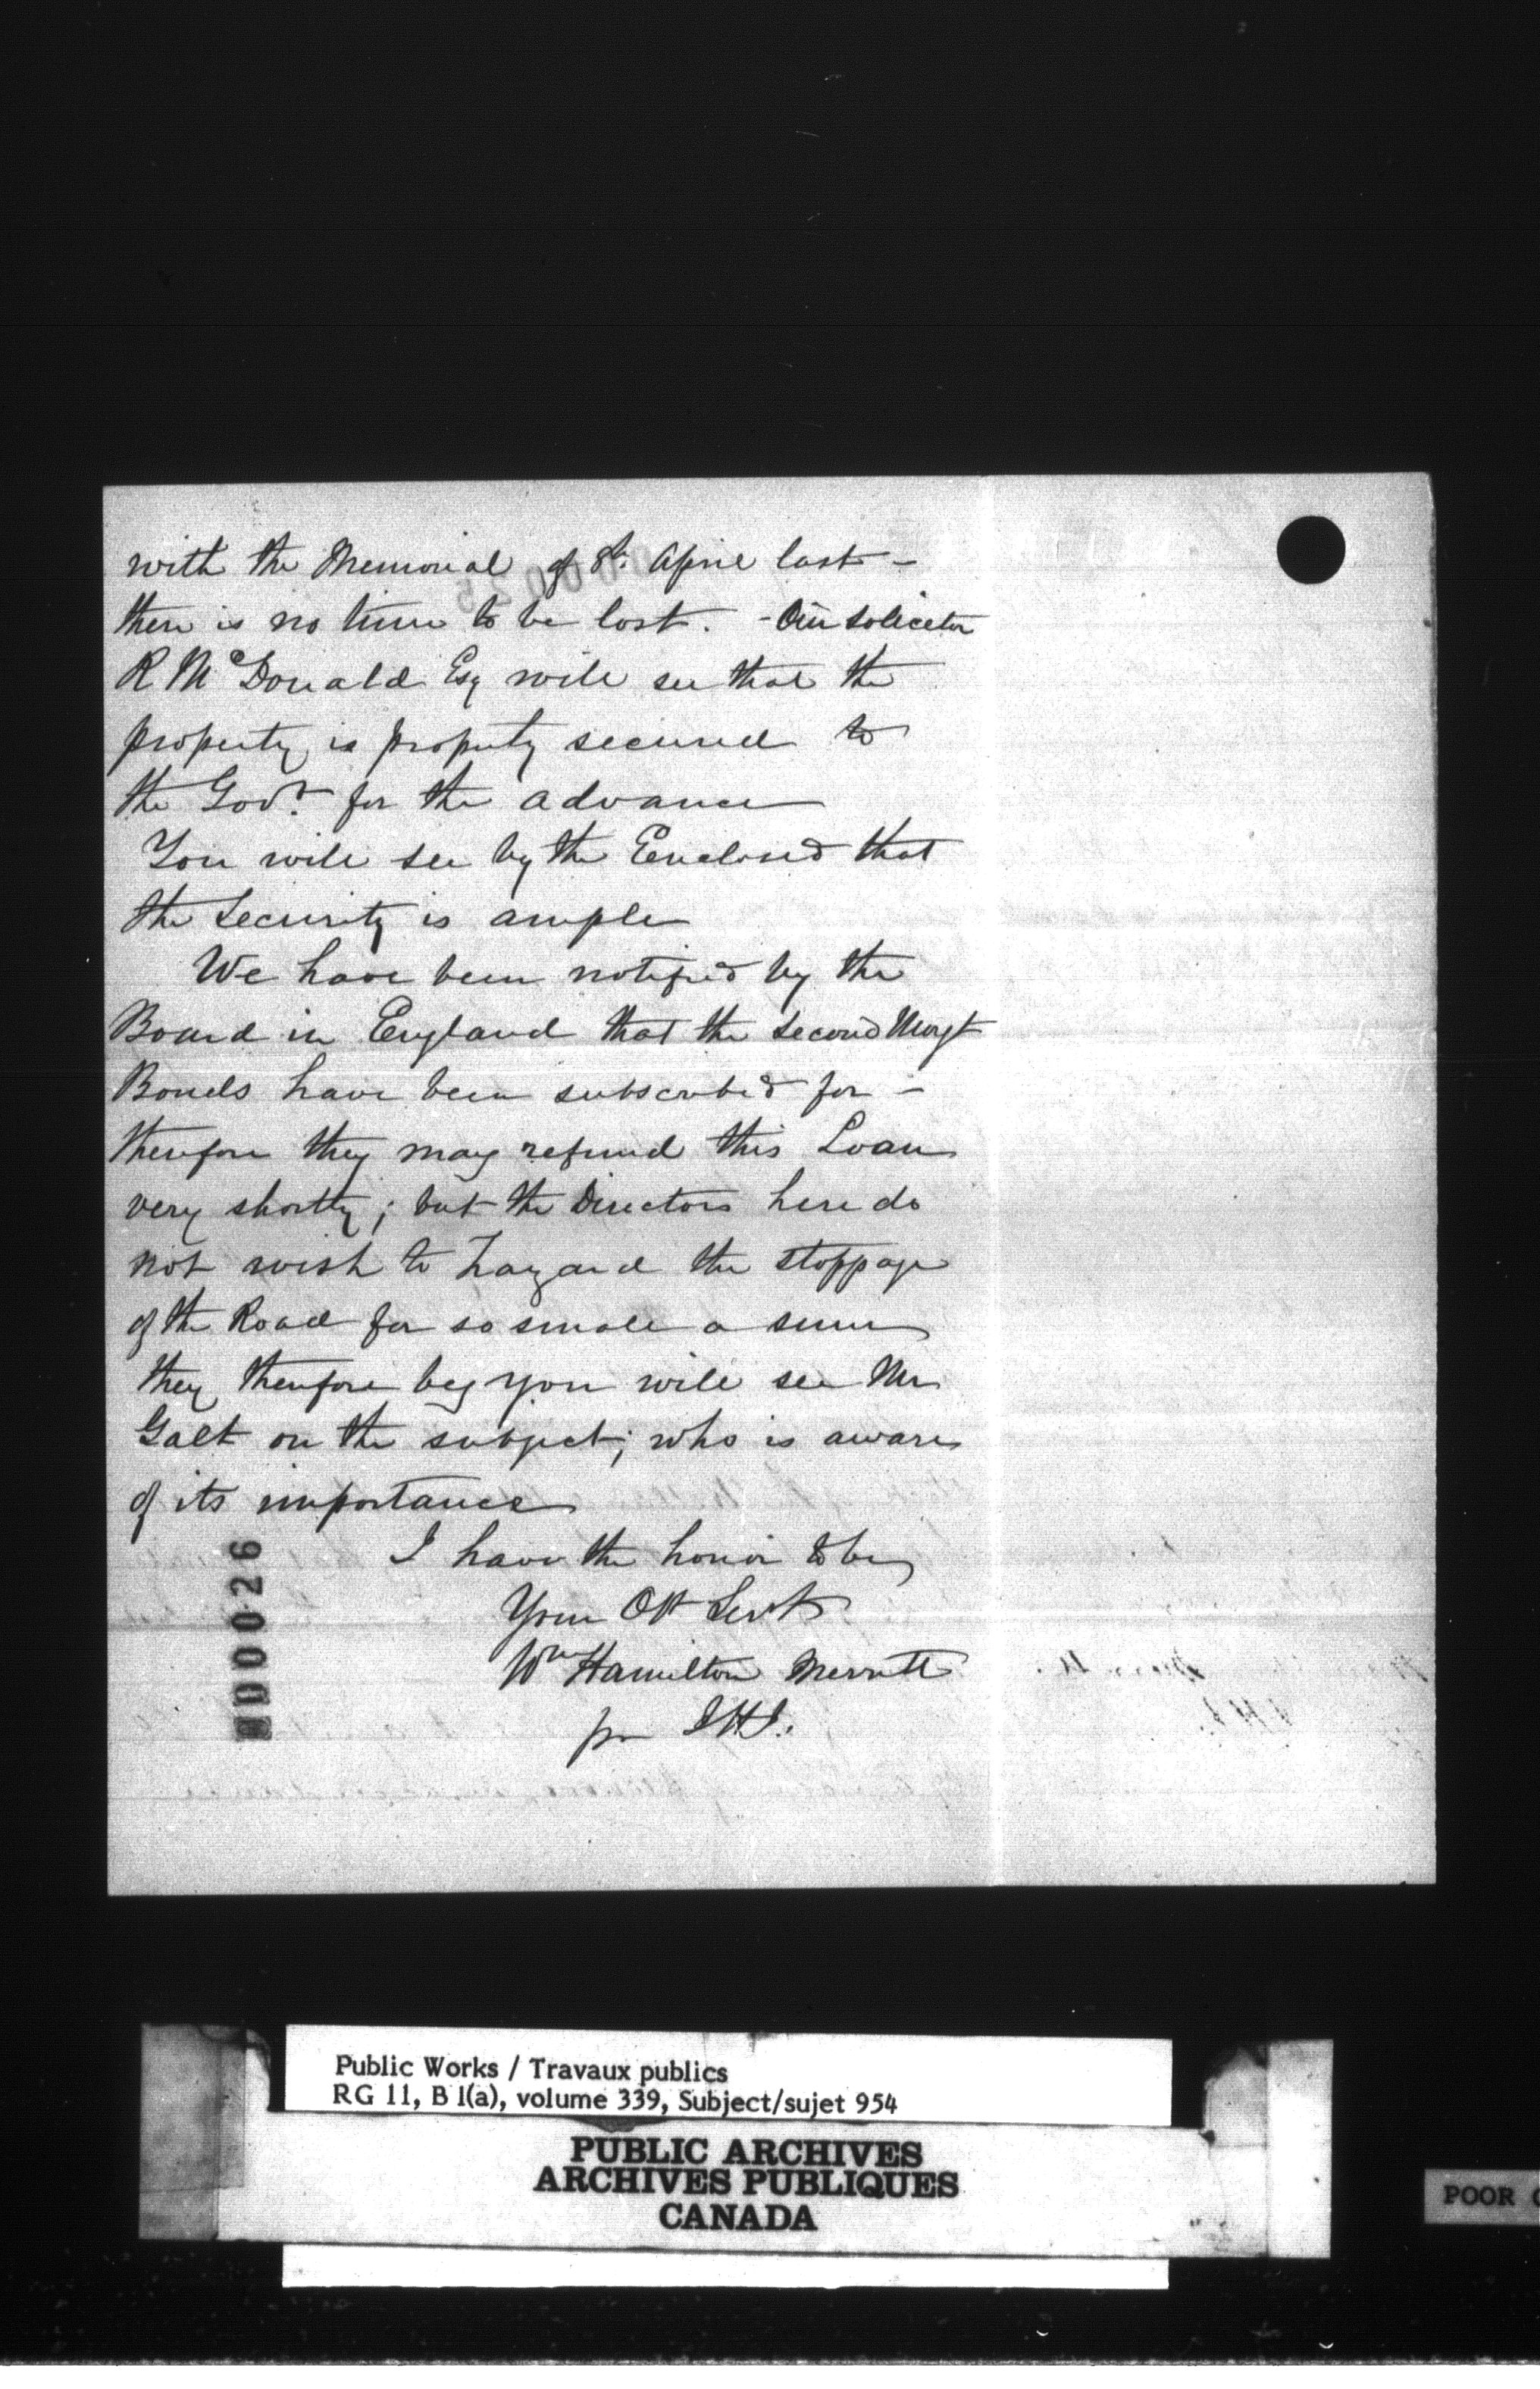 with the Memorial of 8th April last –
there is no time to be lost. - Our Solicitor
R McDonald Esq will see that the
property is properly secured to
the Govt. for the advance
You will see by the Enclosed that
the Security is ample
We have been notified by the
Board in England that the Second Mortgt
Bonds have been subscribed for –
therefore they may refund this Loan
very shortly; but the Directors here do
not wish to hazard the stoppage
of the Road for so small a sum
they therefore beg you will see Mr
Galt on the subject; who is aware
of its importance
I have the honor to be
Your Obt Servt
Wm Hamilton Merritt
pr
000026
Public Works / Travaux publics
RG 11, B 1(a), volume 339, Subject/sujet 954
PUBLIC ARCHIVES
ARCHIVES PUBLIQUES
CANADA
POOR